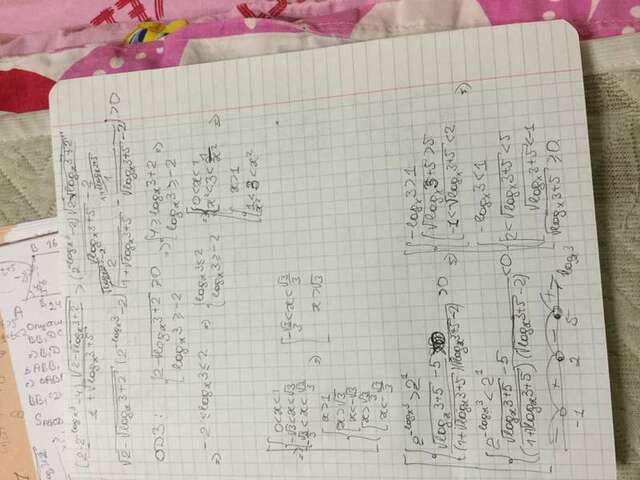 (2·2^{-log_x 3}-4)√(2-√(log_x 3+2)) / (1+√(log_x 3+5)) > (2^{-log_x 3}-2)√(2-√(log_x 3+2)) / (√(log_x 3+5)-2)
√(2-√(log_x 3+2)) (2^{-log_x 3}-2) (2/(1+√(log_x 3+5)) - 1/(√(log_x 3+5)-2)) > 0
ОДЗ: { 2-√(log_x 3+2) ≥ 0 ; log_x 3 ≥ -2 ⇒ { 4 ≥ log_x 3+2 ; log_x 3 ≥ -2 ⇒
⇒ -2 ≤ log_x 3 ≤ 2 ⇒ { log_x 3 ≤ 2 ; log_x 3 ≥ -2 ⇒ [ { 0<x<1 ; x²<3<1/x² ; { x>1 ; 1/x²<3<x² ⇒
⇒ [ { 0<x<1 ; -√3<x<√3 ; -√3/3<x<√3/3 ⇒ [ -√3/3<x<√3/3 ; x>√3
{ x>1
x>√3
x<-√3
x>√3/3
x<-√3/3
[ { 2^{-log_x 3} > 2^1 ; (√(log_x 3+5)-5) / ((1+√(log_x 3+5))(√(log_x 3+5)-2)) > 0 ⇒ [ { -log_x 3 > 1 ; √(log_x 3+5) > 5 ; -1<√(log_x 3+5)<2 ⇒
{ 2^{-log_x 3} < 2^1 ; (√(log_x 3+5)-5) / ((1+√(log_x 3+5))(√(log_x 3+5)-2)) < 0 { -log_x 3 < 1 ; 2<√(log_x 3+5)<5 ; √(log_x 3+5)<-1
√(log_x 3+5) ≥ 0
- + - +
-1 2 5 log_x 3